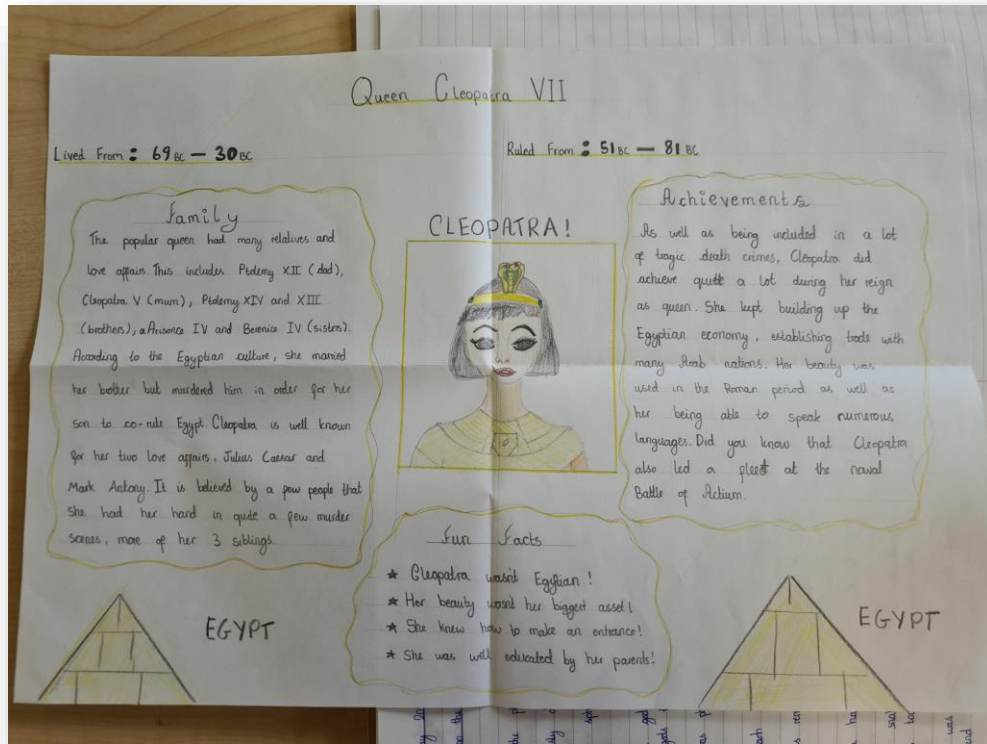 Queen Cleopatra VII
Lived From: 69 BC – 30 BC
Ruled From: 51 BC – 81 BC
Family
The popular queen had many relatives and
love affairs. This includes Ptolemy XII (dad),
Cleopatra V (mum), Ptolemy XIV and XIII
(brothers), Arisonce IV and Berenice IV (sisters).
According to the Egyptian culture, she married
her brother but murdered him in order for her
son to co-rule Egypt. Cleopatra is well known
for her two love affairs, Julius Caesar and
Mark Antony. It is believed by a few people that
She had her hand in quite a few murder
scenes, more of her 3 siblings.
CLEOPATRA!
Achievements
As well as being included in a lot
of tragic death crimes, Cleopatra did
achieve quite a lot during her reign
as queen. She kept building up the
Egyptian economy, establishing trade with
many Arab nations. Her beauty was
used in the Roman period as well as
her being able to speak numerous
languages. Did you know that Cleopatra
also led a fleet at the naval
Battle of Actium.
Fun Facts
★ Cleopatra wasn't Egyptian!
★ Her beauty wasn't her biggest asset!
★ She knew how to make an entrance!
★ She was well educated by her parents!
EGYPT
EGYPT